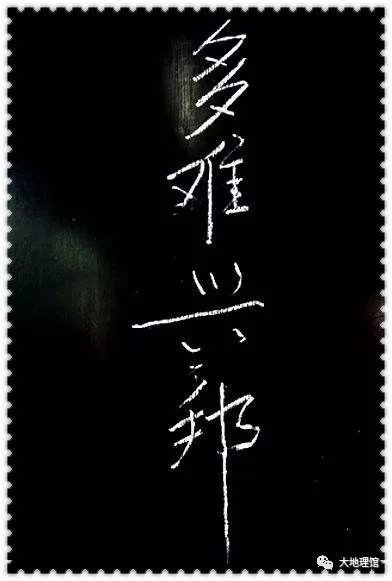 多难兴邦
大地理馆